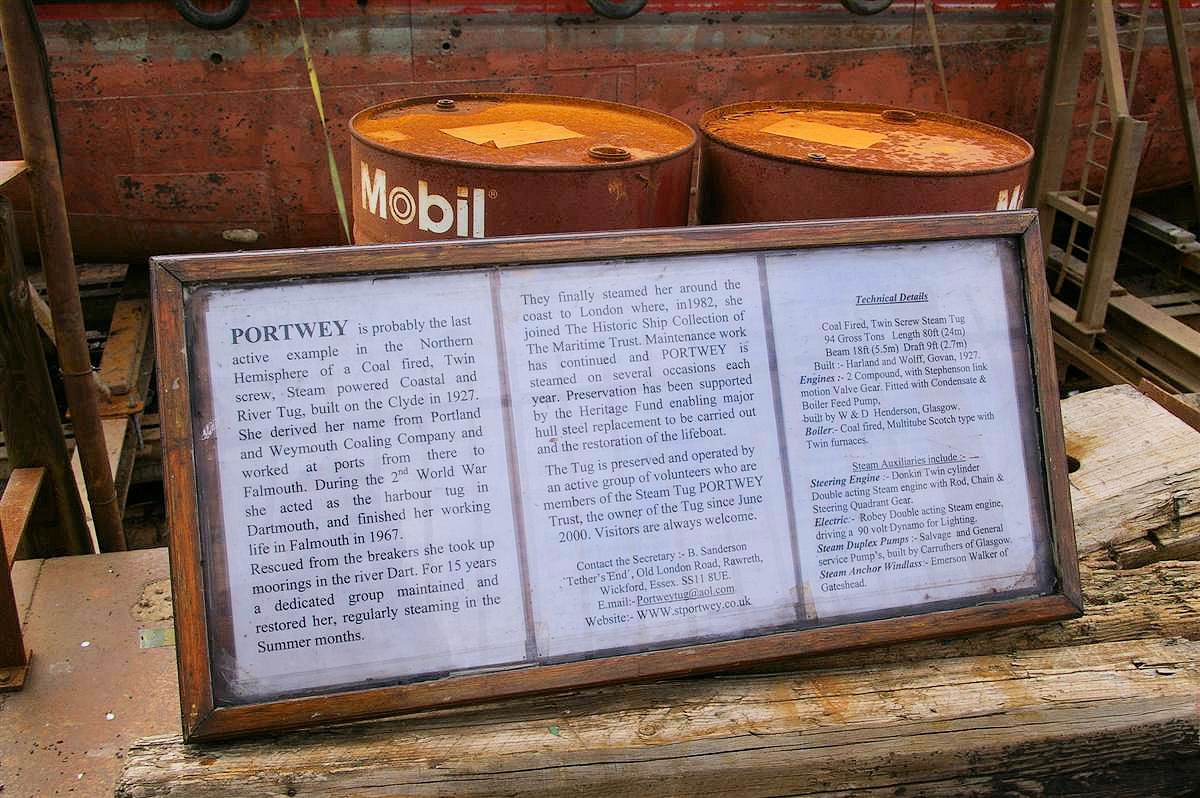 Mobil®
M
PORTWEY is probably the last
active example in the Northern
Hemisphere of a Coal fired, Twin
screw, Steam powered Coastal and
River Tug, built on the Clyde in 1927.
She derived her name from Portland
and Weymouth Coaling Company and
worked at ports from there to
Falmouth. During the 2nd World War
she acted as the harbour tug in
Dartmouth, and finished her working
life in Falmouth in 1967.
Rescued from the breakers she took up
moorings in the river Dart. For 15 years
a dedicated group maintained and
restored her, regularly steaming in the
Summer months.
They finally steamed her around the
coast to London where, in1982, she
joined The Historic Ship Collection of
The Maritime Trust. Maintenance work
has continued and PORTWEY is
steamed on several occasions each
year. Preservation has been supported
by the Heritage Fund enabling major
hull steel replacement to be carried out
and the restoration of the lifeboat.
The Tug is preserved and operated by
an active group of volunteers who are
members of the Steam Tug PORTWEY
Trust, the owner of the Tug since June
2000. Visitors are always welcome.
Contact the Secretary :- B. Sanderson
'Tether's End', Old London Road, Rawreth,
Wickford, Essex. SS11 8UE.
E.mail:- Portweytug@aol.com
Website:- WWW.stportwey.co.uk
Technical Details
Coal Fired, Twin Screw Steam Tug
94 Gross Tons Length 80ft (24m)
Beam 18ft (5.5m) Draft 9ft (2.7m)
Built :- Harland and Wolff, Govan, 1927.
Engines :- 2 Compound, with Stephenson link
motion Valve Gear. Fitted with Condensate &
Boiler Feed Pump,
built by W & D Henderson, Glasgow.
Boiler:- Coal fired, Multitube Scotch type with
Twin furnaces.
Steam Auxiliaries include :-
Steering Engine :- Donkin Twin cylinder
Double acting Steam engine with Rod, Chain &
Steering Quadrant Gear.
Electric:- Robey Double acting Steam engine,
driving a 90 volt Dynamo for Lighting.
Steam Duplex Pumps :- Salvage and General
service Pump's, built by Carruthers of Glasgow.
Steam Anchor Windlass:- Emerson Walker of
Gateshead.